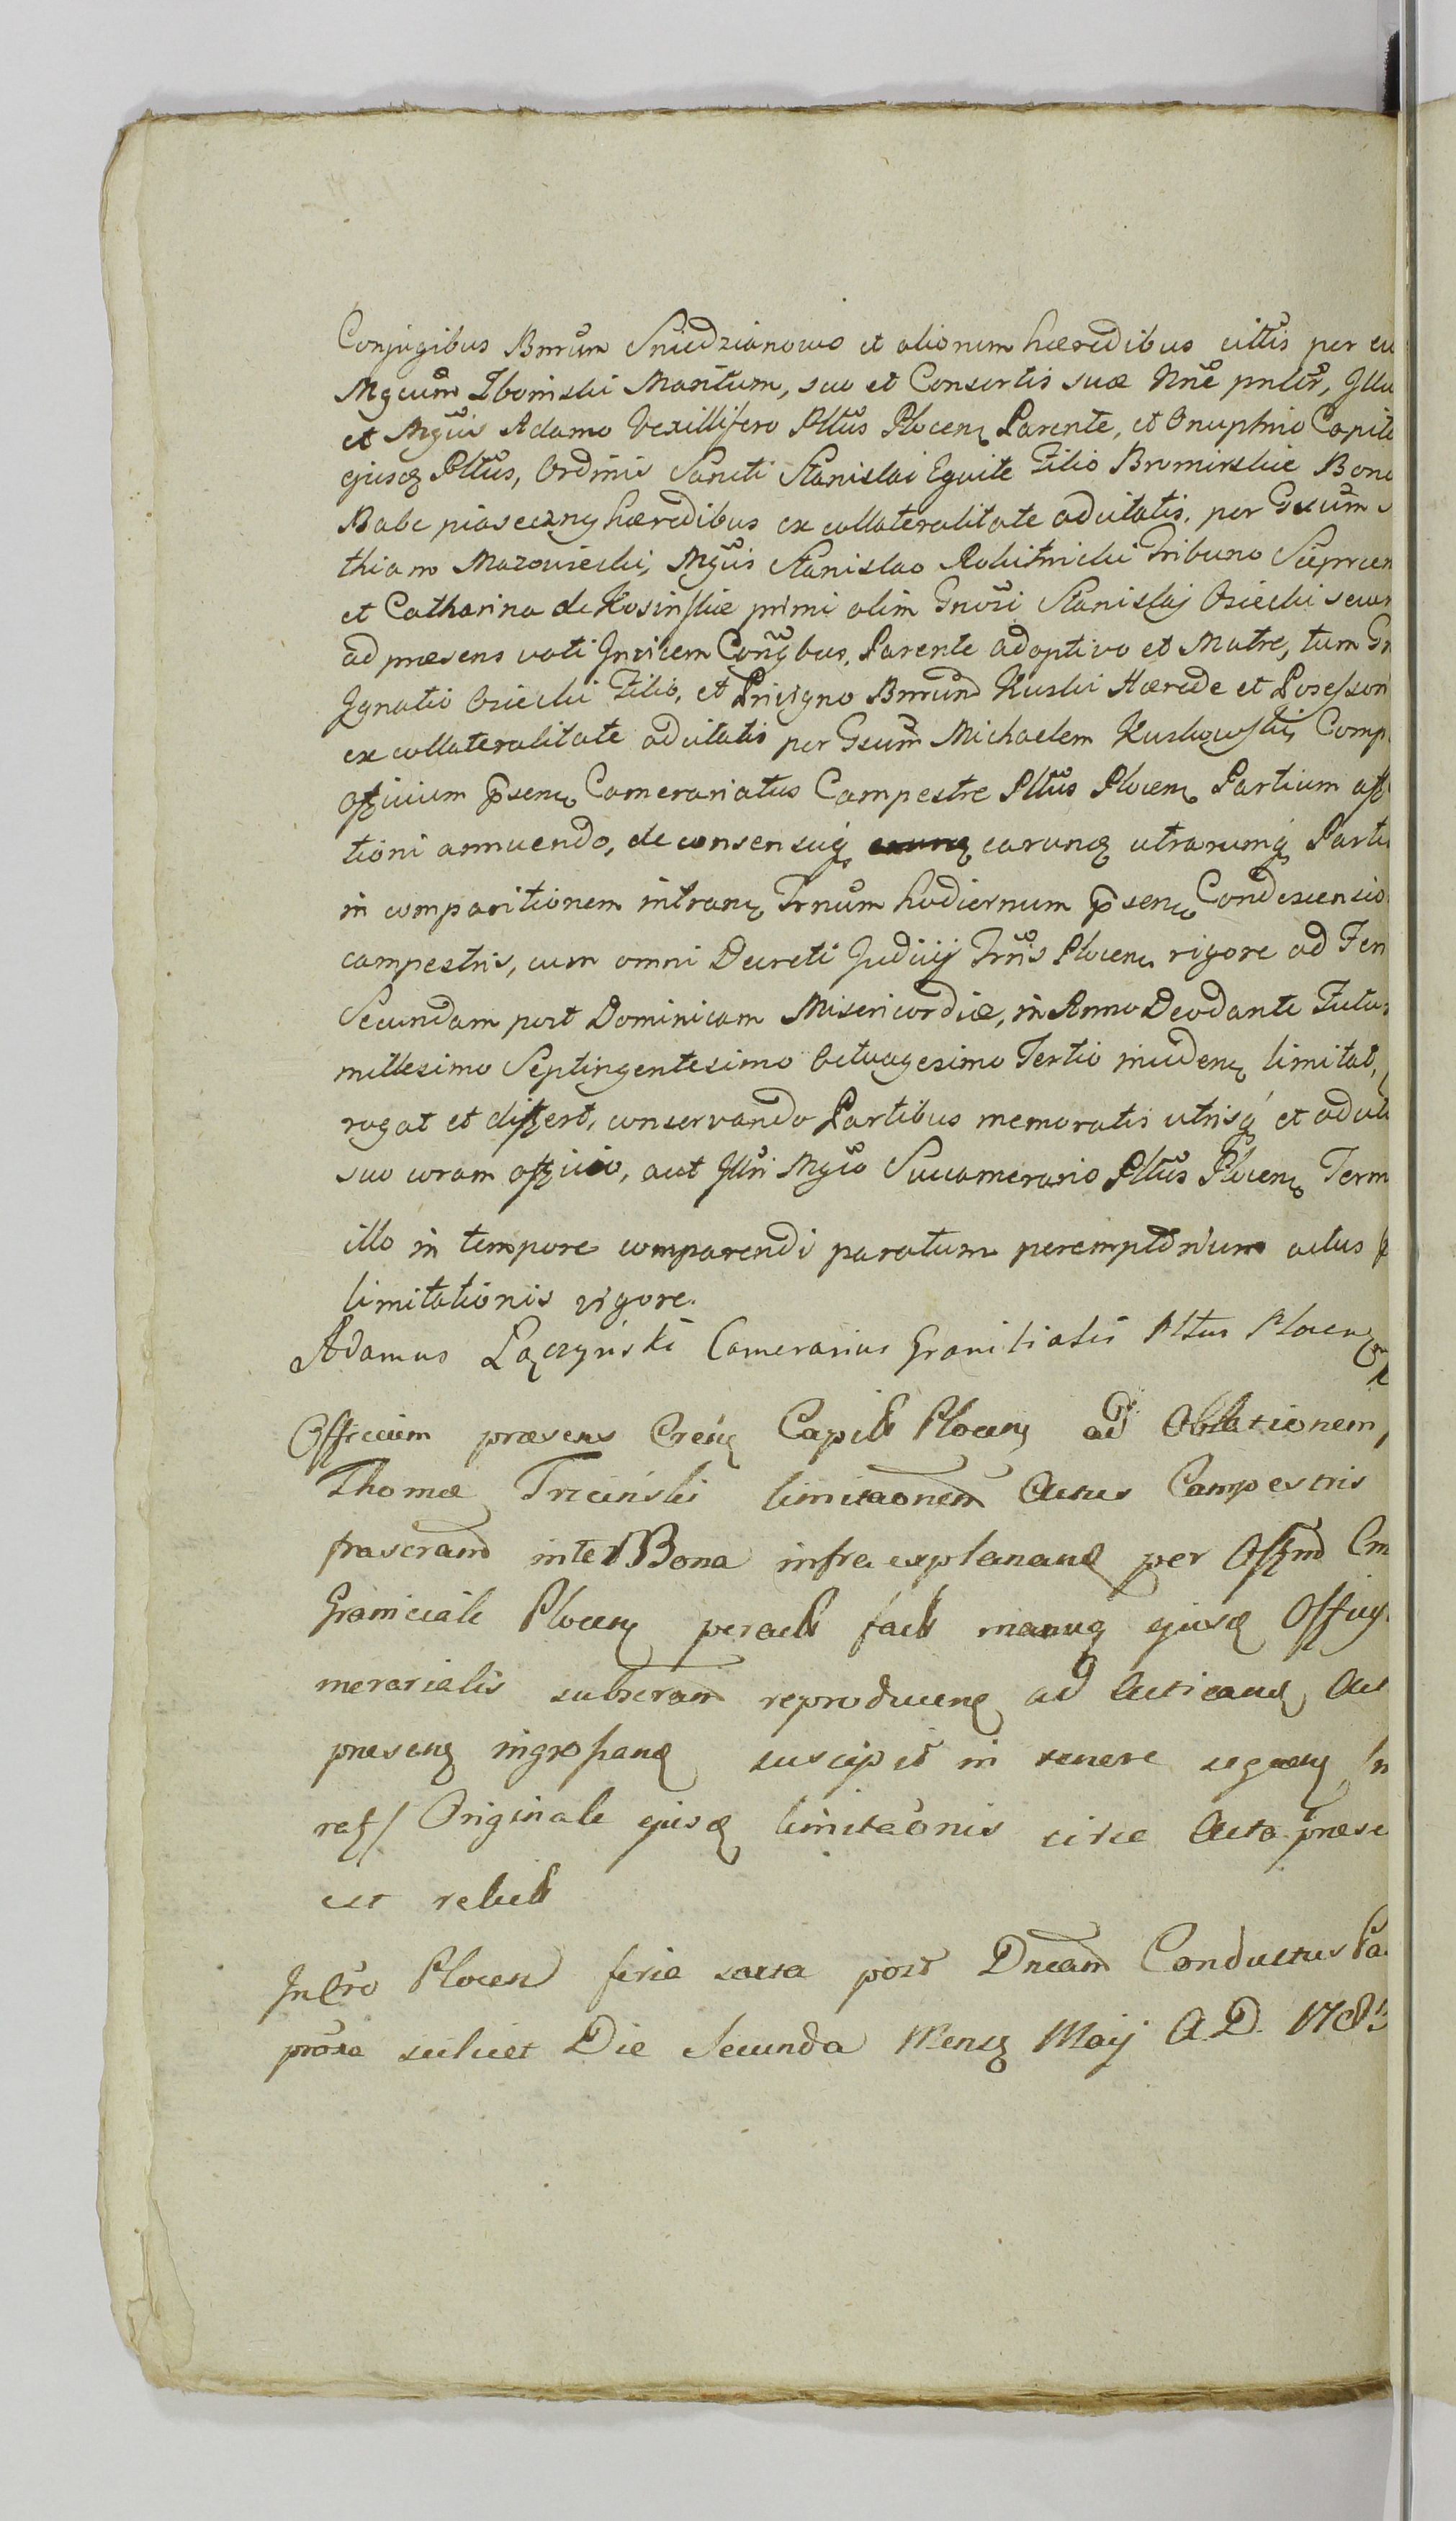 Conjugibus Bnrum Sniedzianowo et aliorum hæredibus cittis per eu
Mgcum Zboinski Maritum, suo et Consortis suæ Nne pnter, Illu
et Mgcis Adamo Vexillifero Pltus Plocen Parente, et Onuphrio Capit
ejusq Pltus, Ordinis Sancti Stanislai Equite Filio Bromirskie Bono
Babe piaseczny hæredibus ex collateralitate adcitatis, per Gsum
thiam Mazowiecki, Mgcis Stanislao Rokitnicki Tribuno Sieprcen
et Catharina de Kosinskie primi olim Gnosi Stanislaj Osiecki secun
ad præsens voti Invicem Conjgbus, Parente adoptivo et Matre, tum Gn
Ignatio Osiecki Filio, et Privigno Bnrund Kuski Hærede et Posessor
ex collateralitate adcitatis per Gsum Michaelem Kuskowski, Comp
Officium psens Camerariatus Campestre Pltus Plocen Partium aff
tioni annuendo, de consensuq earunq utrarumq Parti
in comparitionem intrans Trnum hodiernum psens Condescensio
campestris, cum omni Decreti Judicij Trris Plocen rigore ad Feri
Secundam post Dominicam Misericordiæ, in Anno Deodante Futur
millesimo Septingentesimo Octuagesimo Tertio inciden limitat,
rogat et differt, conservando Partibus memoratis utrisq et adcit
suo coram officio, aut Illri Mgco Succamerario Pltus Plocen Term
illo in tempore comparendi paratum peremptorium actus p
limitationis vigore.
Adamus Łączyński Camerarius Granitialis Pltus Plocen
Officium præsens Crens Capitl Plocen ad Oblationem
Thomæ Trzcinski limitaonem Actus Campestris
frascrand inter Bona infra explanand per Offind Cm
Graniciale Plocens peractl factl manuq ejusd Officy
merarialis subscram reproducens ad Acticand Act
presens ingrossand suscipit in tenore sequens In
rat/ Originale ejusd limitaonis circa Acta præse
est relictl
In Cro Plocen feria sexta post Dncam Conductus Pa
proxa scilicet Die Secunda Mensis Maij A.D. 1783